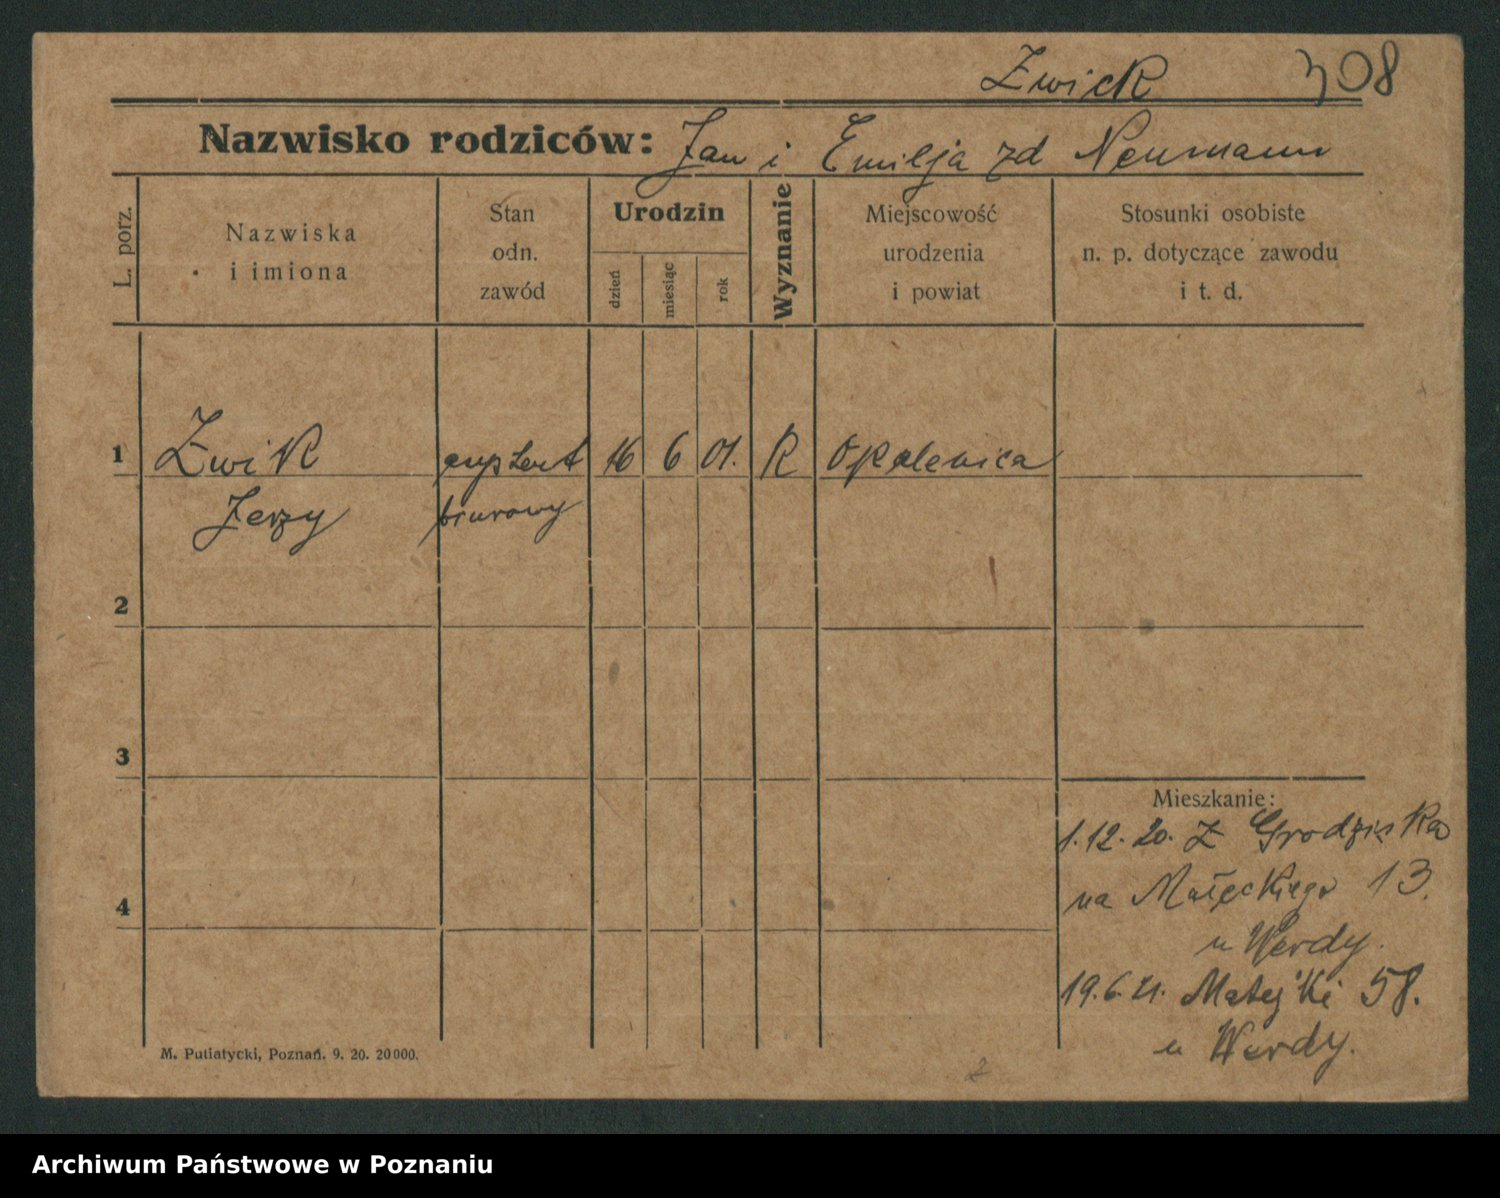 Zwick 308
Nazwisko rodziców: Jan i Emilja zd Neumann
L. porz.
Nazwiska
i imiona
Stan
odn.
zawód
Urodzin
dzień
miesiąc
rok
Wyznanie
Miejscowość
urodzenia
i powiat
Stosunki osobiste
n. p. dotyczące zawodu
i t. d.
1 Zwik 16 6 01. R Opalenica
Jerzy biurowy
2
3
4
Mieszkanie:
1.12.20. Z Grodziska
na Małeckiego 13.
u Werdy.
19.6.21. Matejki 58.
u Werdy.
M. Putiatycki, Poznań. 9. 20. 20000.
Archiwum Państwowe w Poznaniu